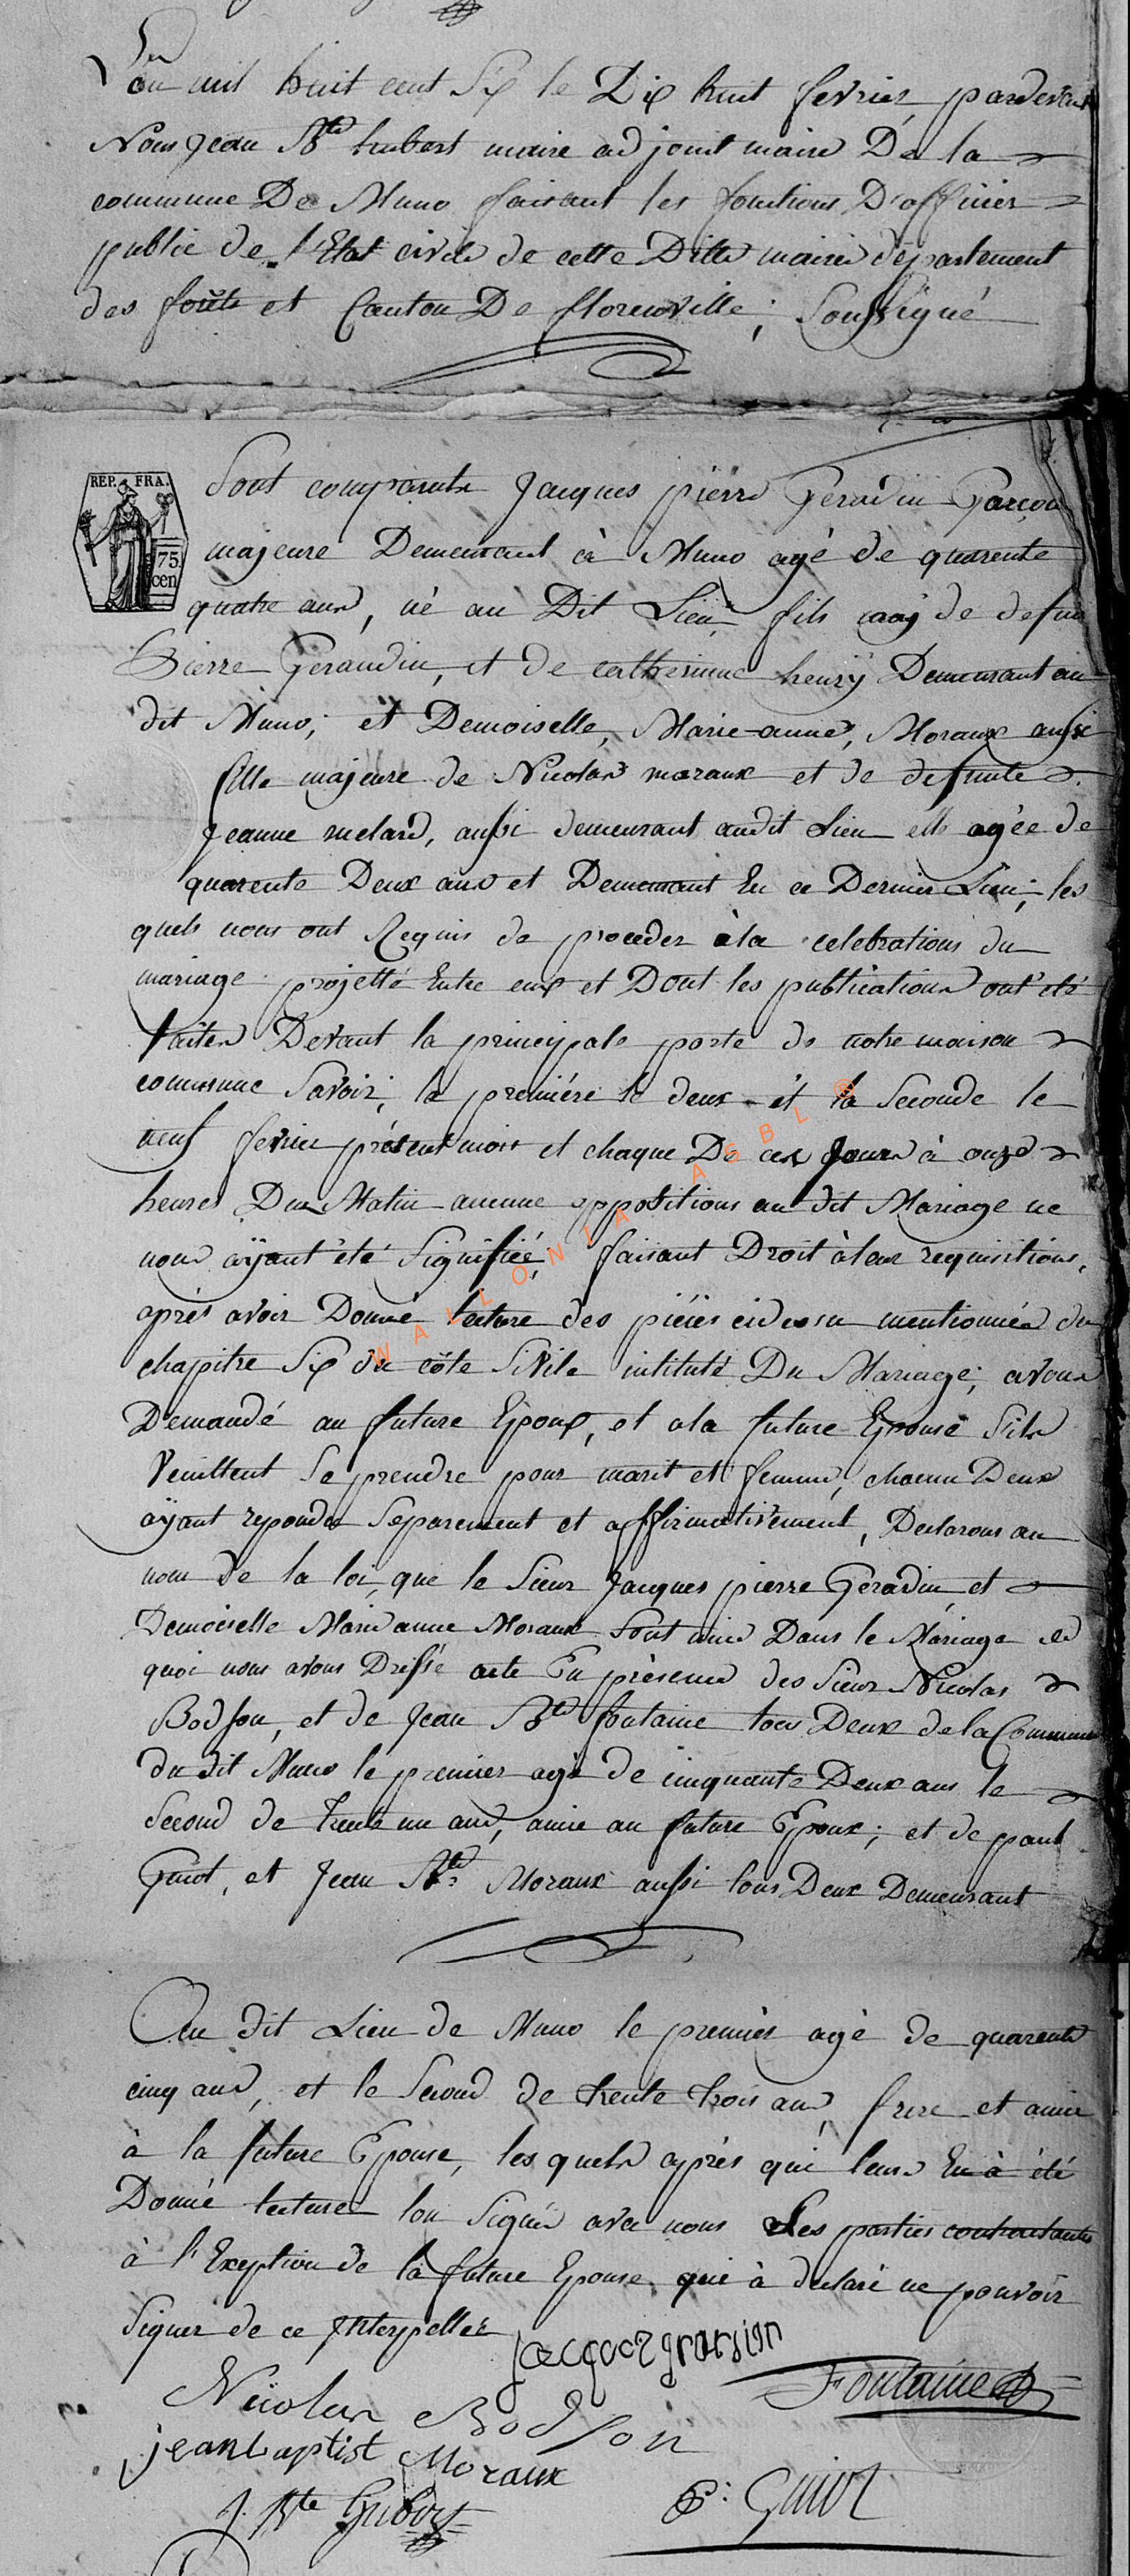 L'an mil huit cent Six le Dix huit fevrier pardevant
Nous Jean Bte hubert maire adjoint maire De la
commune De Muno faisant les fonctions D'officier
public de l'Etat civile de cette Ditte mairie département
des forêts et Canton De florenville; Soussigné
REP. FRA.
75 cen
Sont comparute Jacques pierre Geradin Garçon
majeure Demeurant à Muno agé de quarente
quatre ans, né au Dit Lieu, fils maj de defun
Pierre Geraudin, et de catherinne henrÿ Demeurant au
dit Muno; et Demoiselle, Marie-anne, Moraux aussi
fille majeure de Nicolas moraux et de defunte
Jeanne melard, aussi demeurant audit Lieu elle agée de
quarente Deux ans et Demeurant En ce Dernier Lieu; les
quels nous ont Requis de proceder à la celebrations du
mariage projetté Entre eux et Dont les publications ont été
faites Devant la principale porte de notre maison
commune Savoir; la première le deux et la Seconde le
neuf fevrier présent mois et chaque De ces Jours à onze
heures Du Matin aucune oppositions au dit Mariage ne
nous aÿant été Signifiéé; faisant Droit à leur requisitions,
après avoir Donné lecture des pièces cidessu mentionnéa du
chapitre Six du côte Sivile intitulé Du Mariage; avons
Demandé au future Epoux, et ala future Epouse Sils
Veuillent Se prendre pour marit et femme, chacun Deux
aÿant repondu Separement et affirmativement, Declarons au
nom de la loi, que le Sieur Jacques pierre Geradin et
Demoiselle Marie anne Moraux Sont unie Dans le Mariage de
quoi nous avons Dressé acte En présence des Sieur Nicolas
Bodson, et de Jean Bte fontaine tous Deux de la Commune
du dit Muno le premier agé de cinquante Deux ans le
Second de Trente un ans, amie au future Epoux; et de paul
Guiot, et Jean Bte Moraux aussi tous Deux Demeurant
Au dit Lieu de Muno le premier agé de quarente
cinq ans, et le Second de trente trois ans, frere et amie
à la future Epouse, les quels après qui leurs En à été
Donné lecture lon Signés avec nous Les parties contractante
à l'Exeption de la future Epouse qui à declaré ne pouvoir
Signer de ce Interpellée
Jacques grardin
Fontaine
Nicolas Bodson
jean baptist Moraux
J. Bte Hubert
P: Guiot
WALLONIA ASBL ®